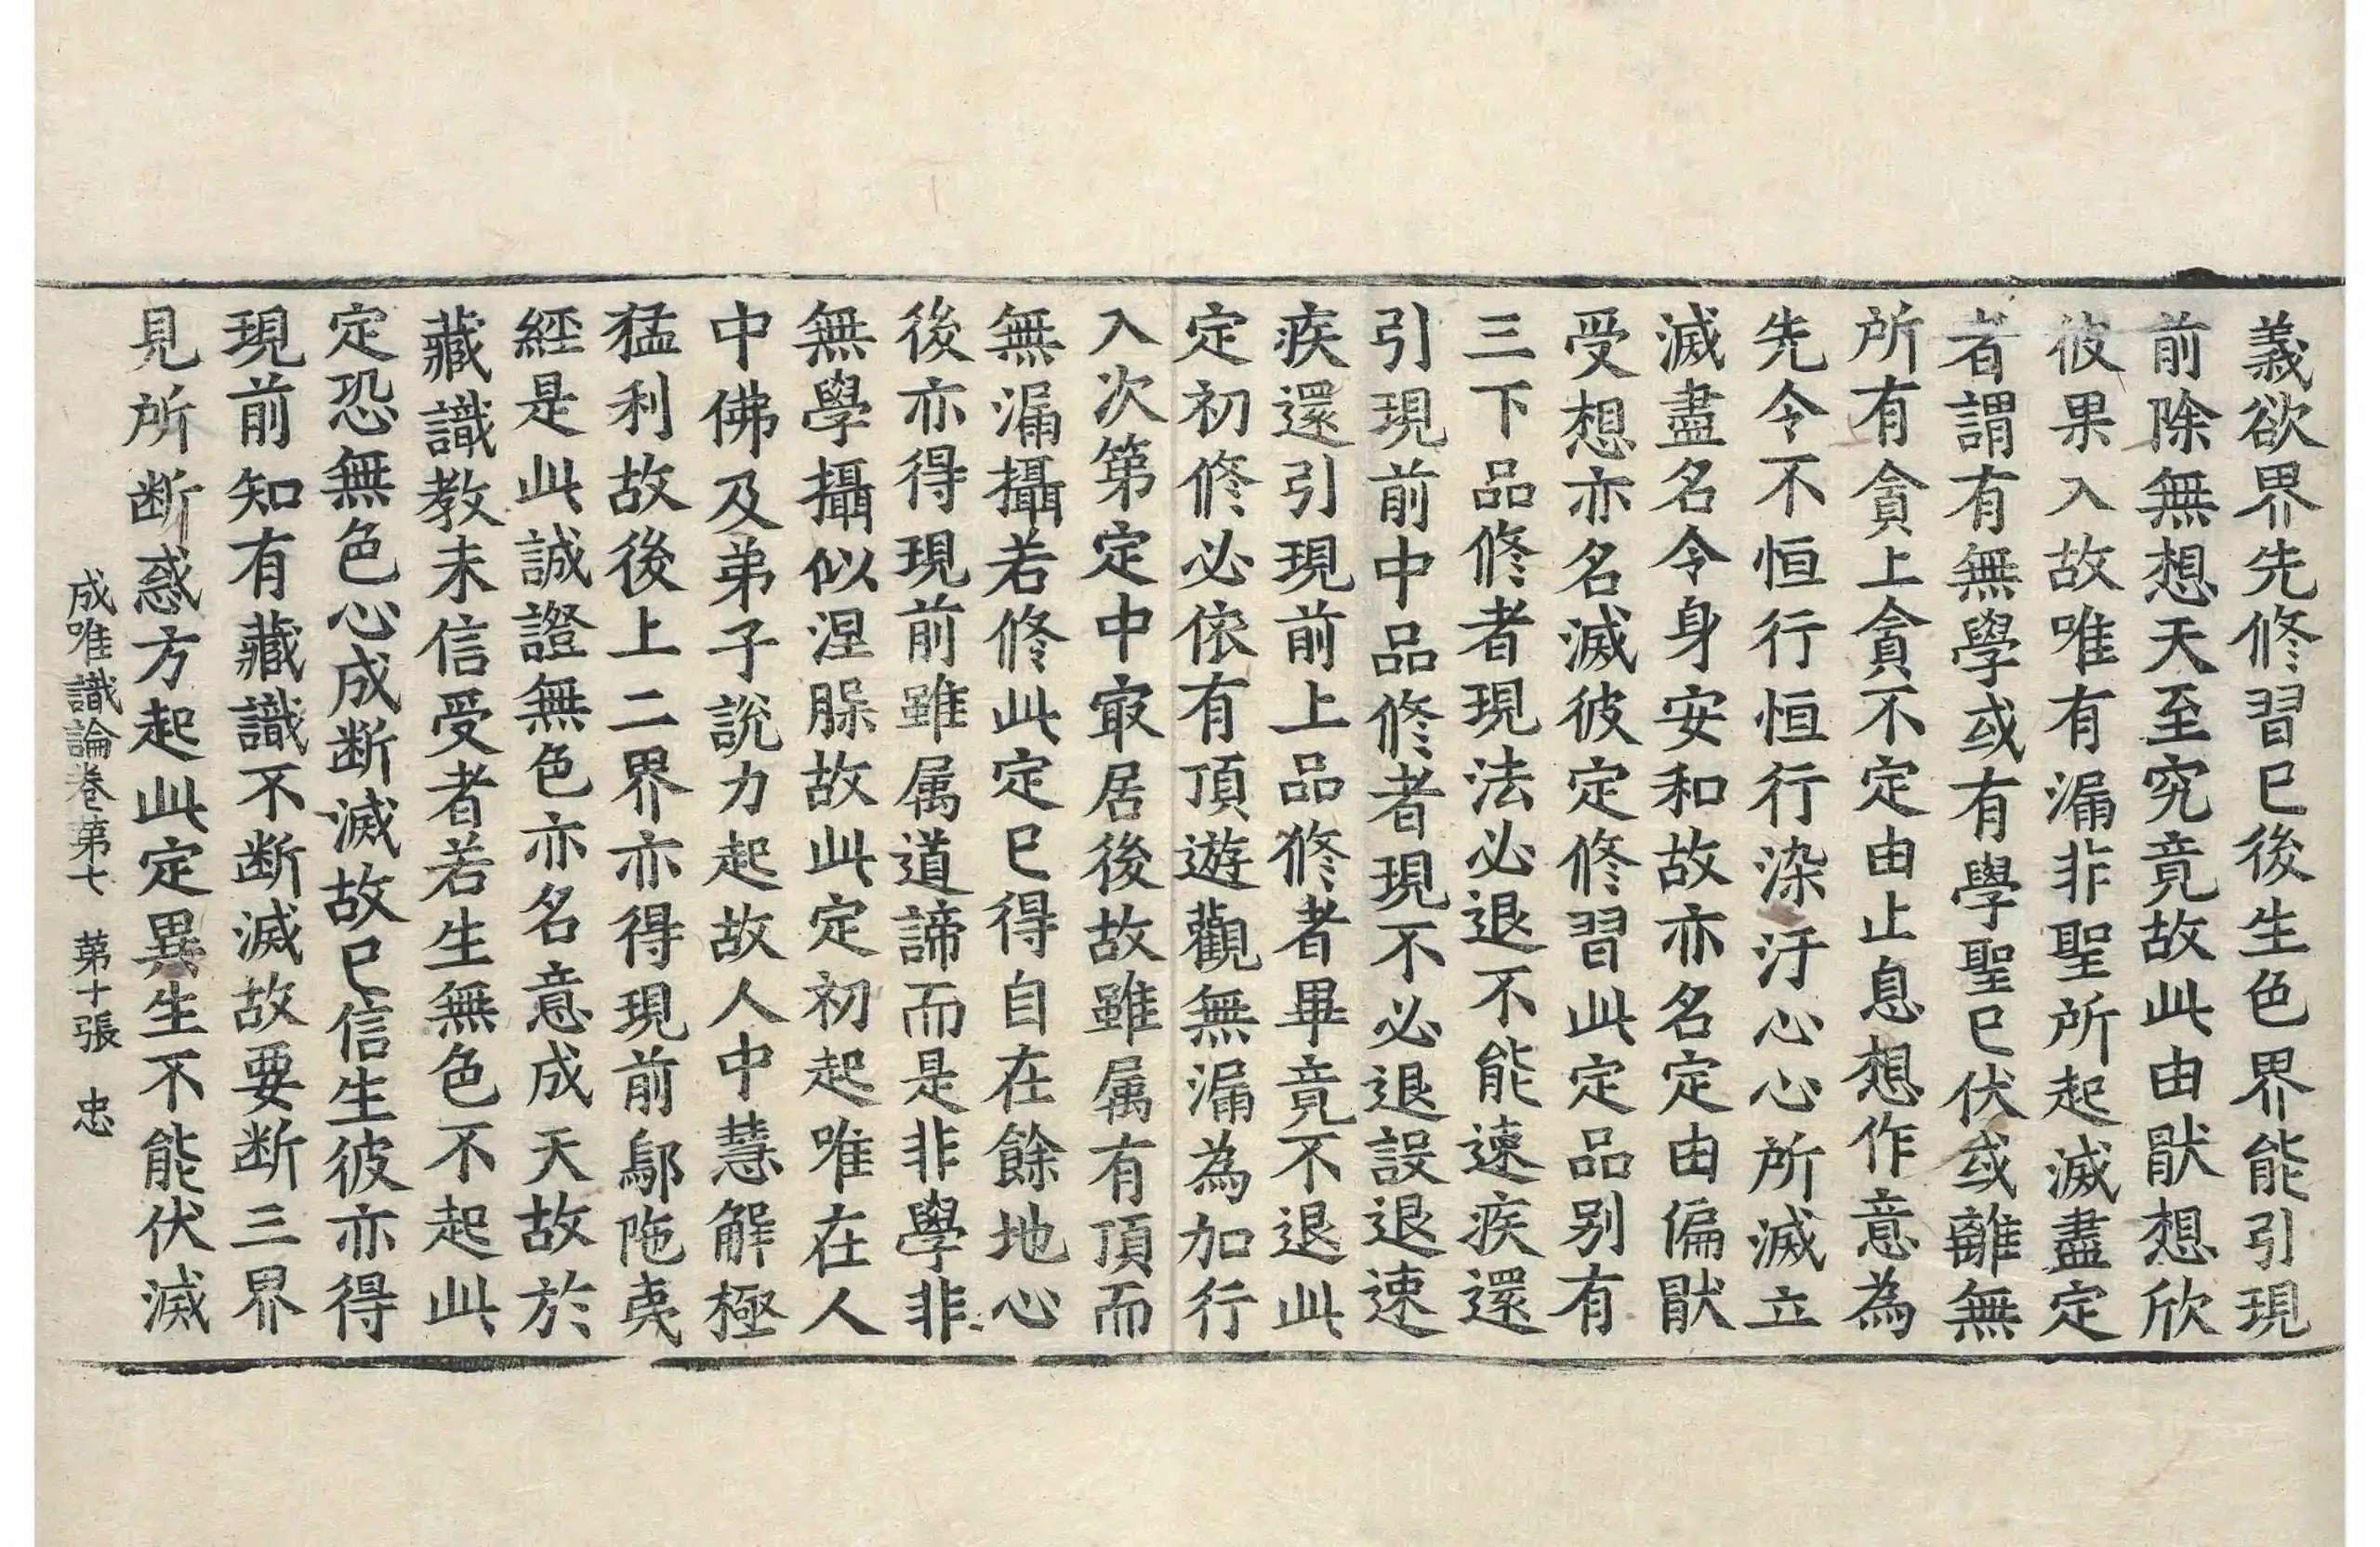 義欲界先修習已後生色界能引現
前除無想天至究竟故此由猒想欣
彼果入故唯有漏非聖所起滅盡定
者謂有無學或有學聖已伏或離無
所有貪上貪不定由止息想作意為
先令不恒行恒行染汙心心所滅立
滅盡名令身安和故亦名定由偏猒
受想亦名滅彼定修習此定品别有
三下品修者現法必退不能速疾還
引現前中品修者現不必退設退速
疾還引現前上品修者畢竟不退此
定初修必依有頂遊觀無漏為加行
入次第定中㝡居後故雖属有頂而
無漏攝若修此定已得自在餘地心
後亦得現前雖属道諦而是非學非
無學攝似涅槃故此定初起唯在人
中佛及弟子說力起故人中慧解極
猛利故後上二界亦得現前鄔陁夷
經是此誠證無色亦名意成天故於
藏識教未信受者若生無色不起此
定恐無色心成断滅故已信生彼亦得
現前知有藏識不断滅故要断三界
見所断惑方起此定異生不能伏滅
成唯識論卷第七 第十張 忠